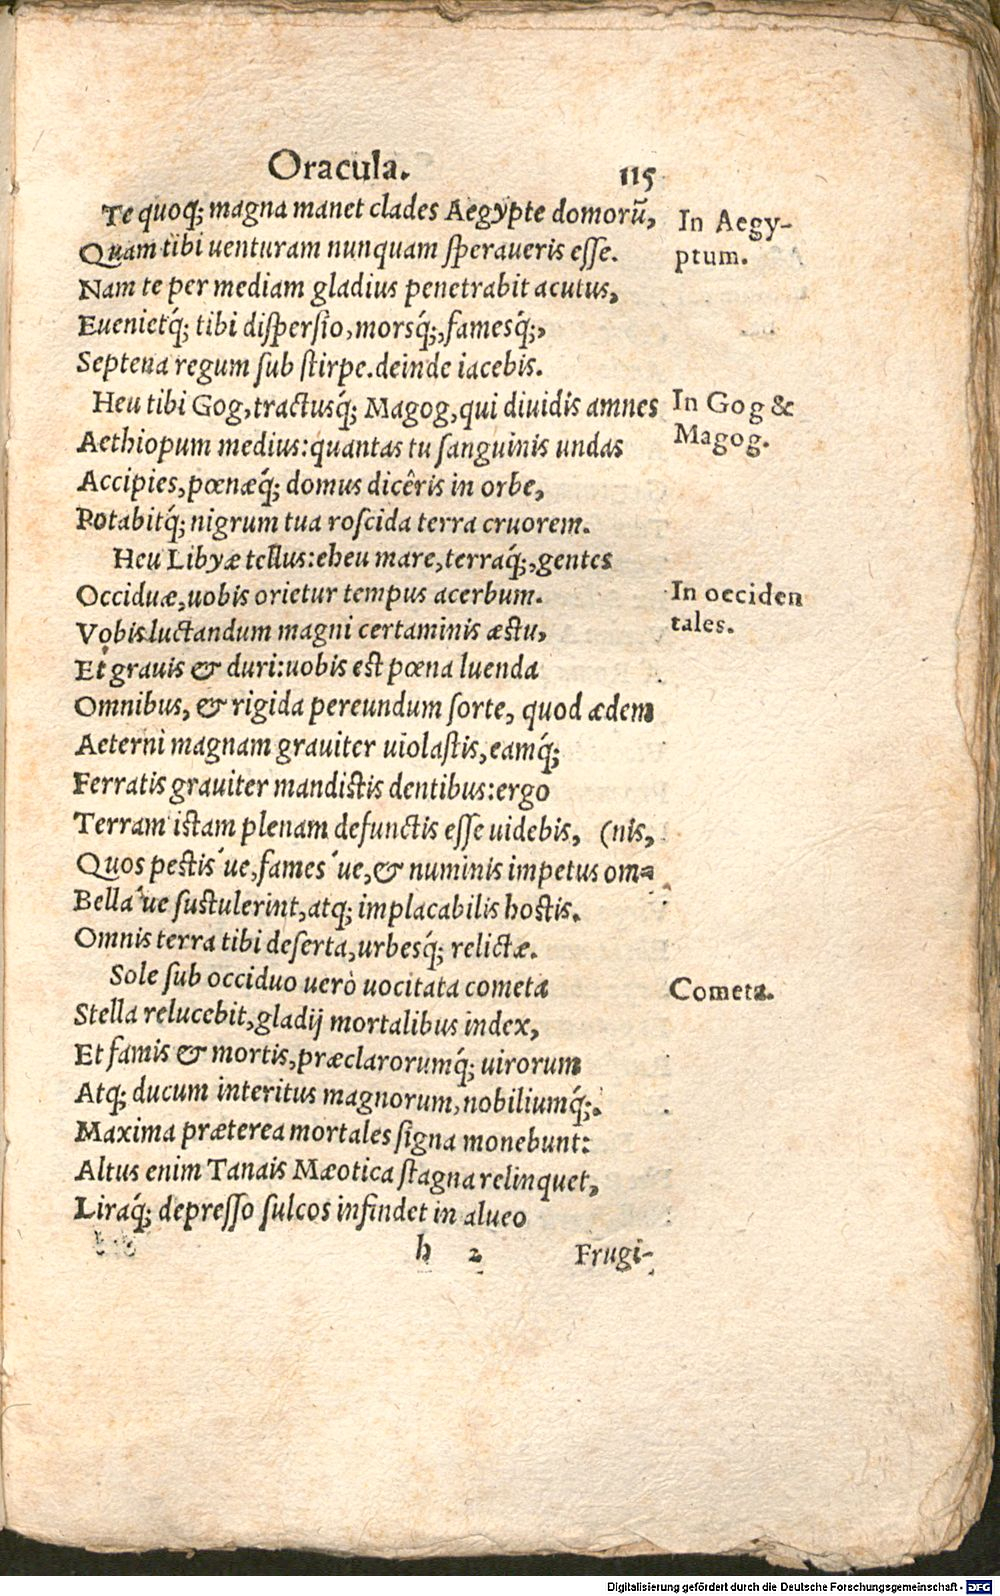 Oracula. 115
Te quoq; magna manet clades Aegypte domorũ,
In Aegy-
Quam tibi uenturam nunquam speraueris esse.
ptum.
Nam te per mediam gladius penetrabit acutus,
Euenietq́; tibi dispersio, morsq́;, famesq́;,
Septena regum sub stirpe.deinde iacebis.
Heu tibi Gog, tractusq́; Magog, qui diuidis amnes
In Gog &
Aethiopum medius: quantas tu sanguinis undas
Magog.
Accipies, pœnæq́; domus dicêris in orbe,
Potabitq́; nigrum tua roscida terra cruorem.
Heu Libyæ tellus: eheu mare, terraq́;, gentes
Occiduæ, uobis orietur tempus acerbum.
In occiden
Vobis luctandum magni certaminis æstu,
tales.
Et grauis & duri: uobis est pœna luenda
Omnibus, & rigida pereundum sorte, quod ædem
Aeterni magnam grauiter uiolastis, eamq́;
Ferratis grauiter mandistis dentibus: ergo
Terram istam plenam defunctis esse uidebis, (nis,
Quos pestis ́ue, fames ́ue, & numinis impetus om=
Bella ́ue sustulerint, atq; implacabilis hostis.
Omnis terra tibi deserta, urbesq́; relictæ.
Sole sub occiduo uerò uocitata cometa
Cometa.
Stella relucebit, gladij mortalibus index,
Et famis & mortis, præclarorumq́; uirorum
Atq; ducum interitus magnorum, nobiliumq́;.
Maxima præterea mortales signa monebunt:
Altus enim Tanais Mæotica stagna relinquet,
Liraq́; depresso sulcos infindet in alueo
h 2 Frugi-
Digitalisierung gefördert durch die Deutsche Forschungsgemeinschaft - DFG